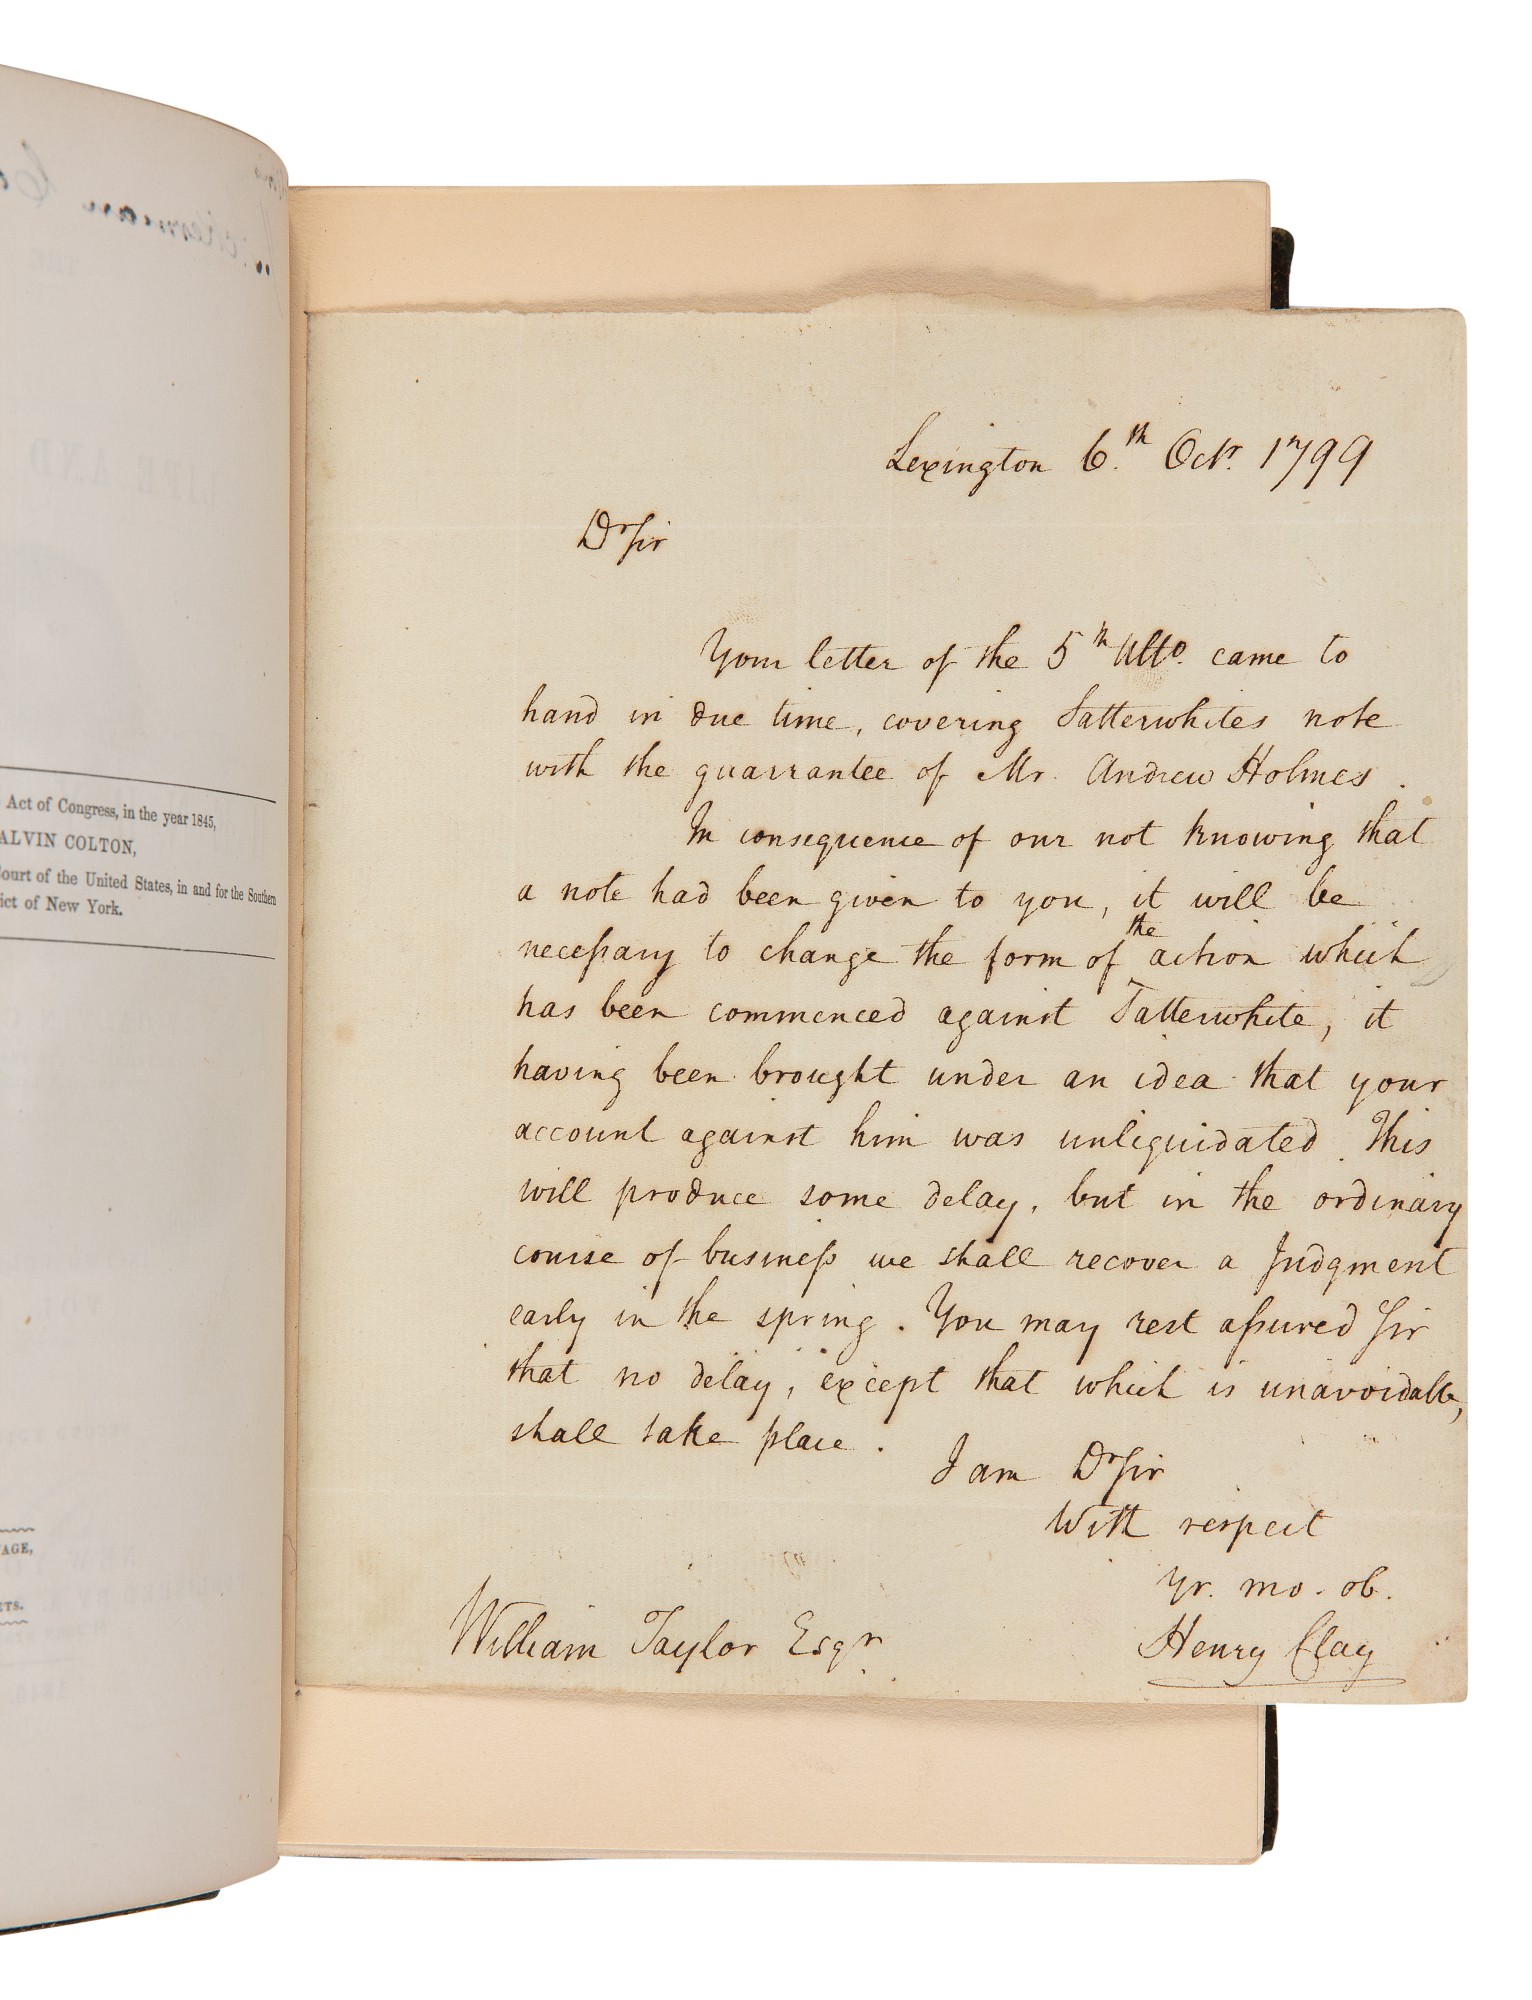 Act of Congress, in the year 1845,
ALVIN COLTON,
Court of the United States, in and for the Southern
ict of New York.
AGE,
ETS.
THE
AND
VOL
1846.
Lexington 6.th Octr. 1799
Dr Sir
Your letter of the 5th Ulto. came to
hand in due time, covering Satterwhites note
with the guarrantee of Mr. Andrew Holmes.
In consequence of our not knowing that
a note had been given to you, it will be
necessary to change the form of the action which
has been commenced against Satterwhite, it
having been brought under an idea that your
account against him was unliquidated. This
will produce some delay, but in the ordinary
course of business we shall recover a Judgment
early in the spring. You may rest assured Sir
that no delay, except that which is unavoidable,
shall take place.
I am Dr Sir
With respect
Yr. mo. ob.
Henry Clay
William Taylor Esqr.